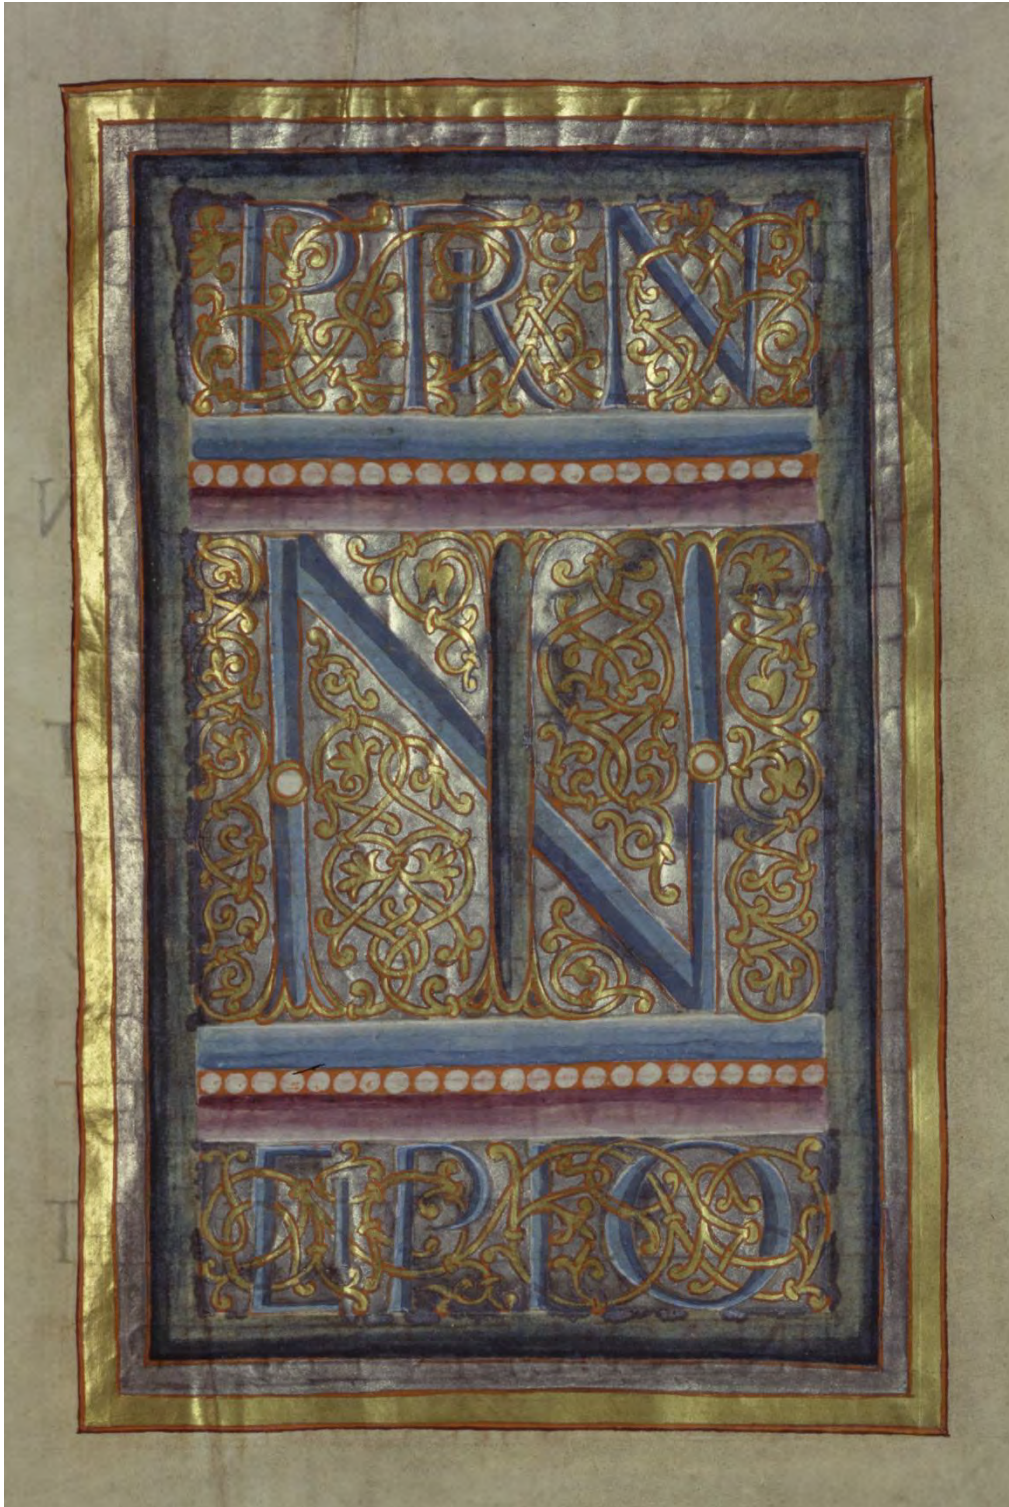 PRIN
IN
CIPIO